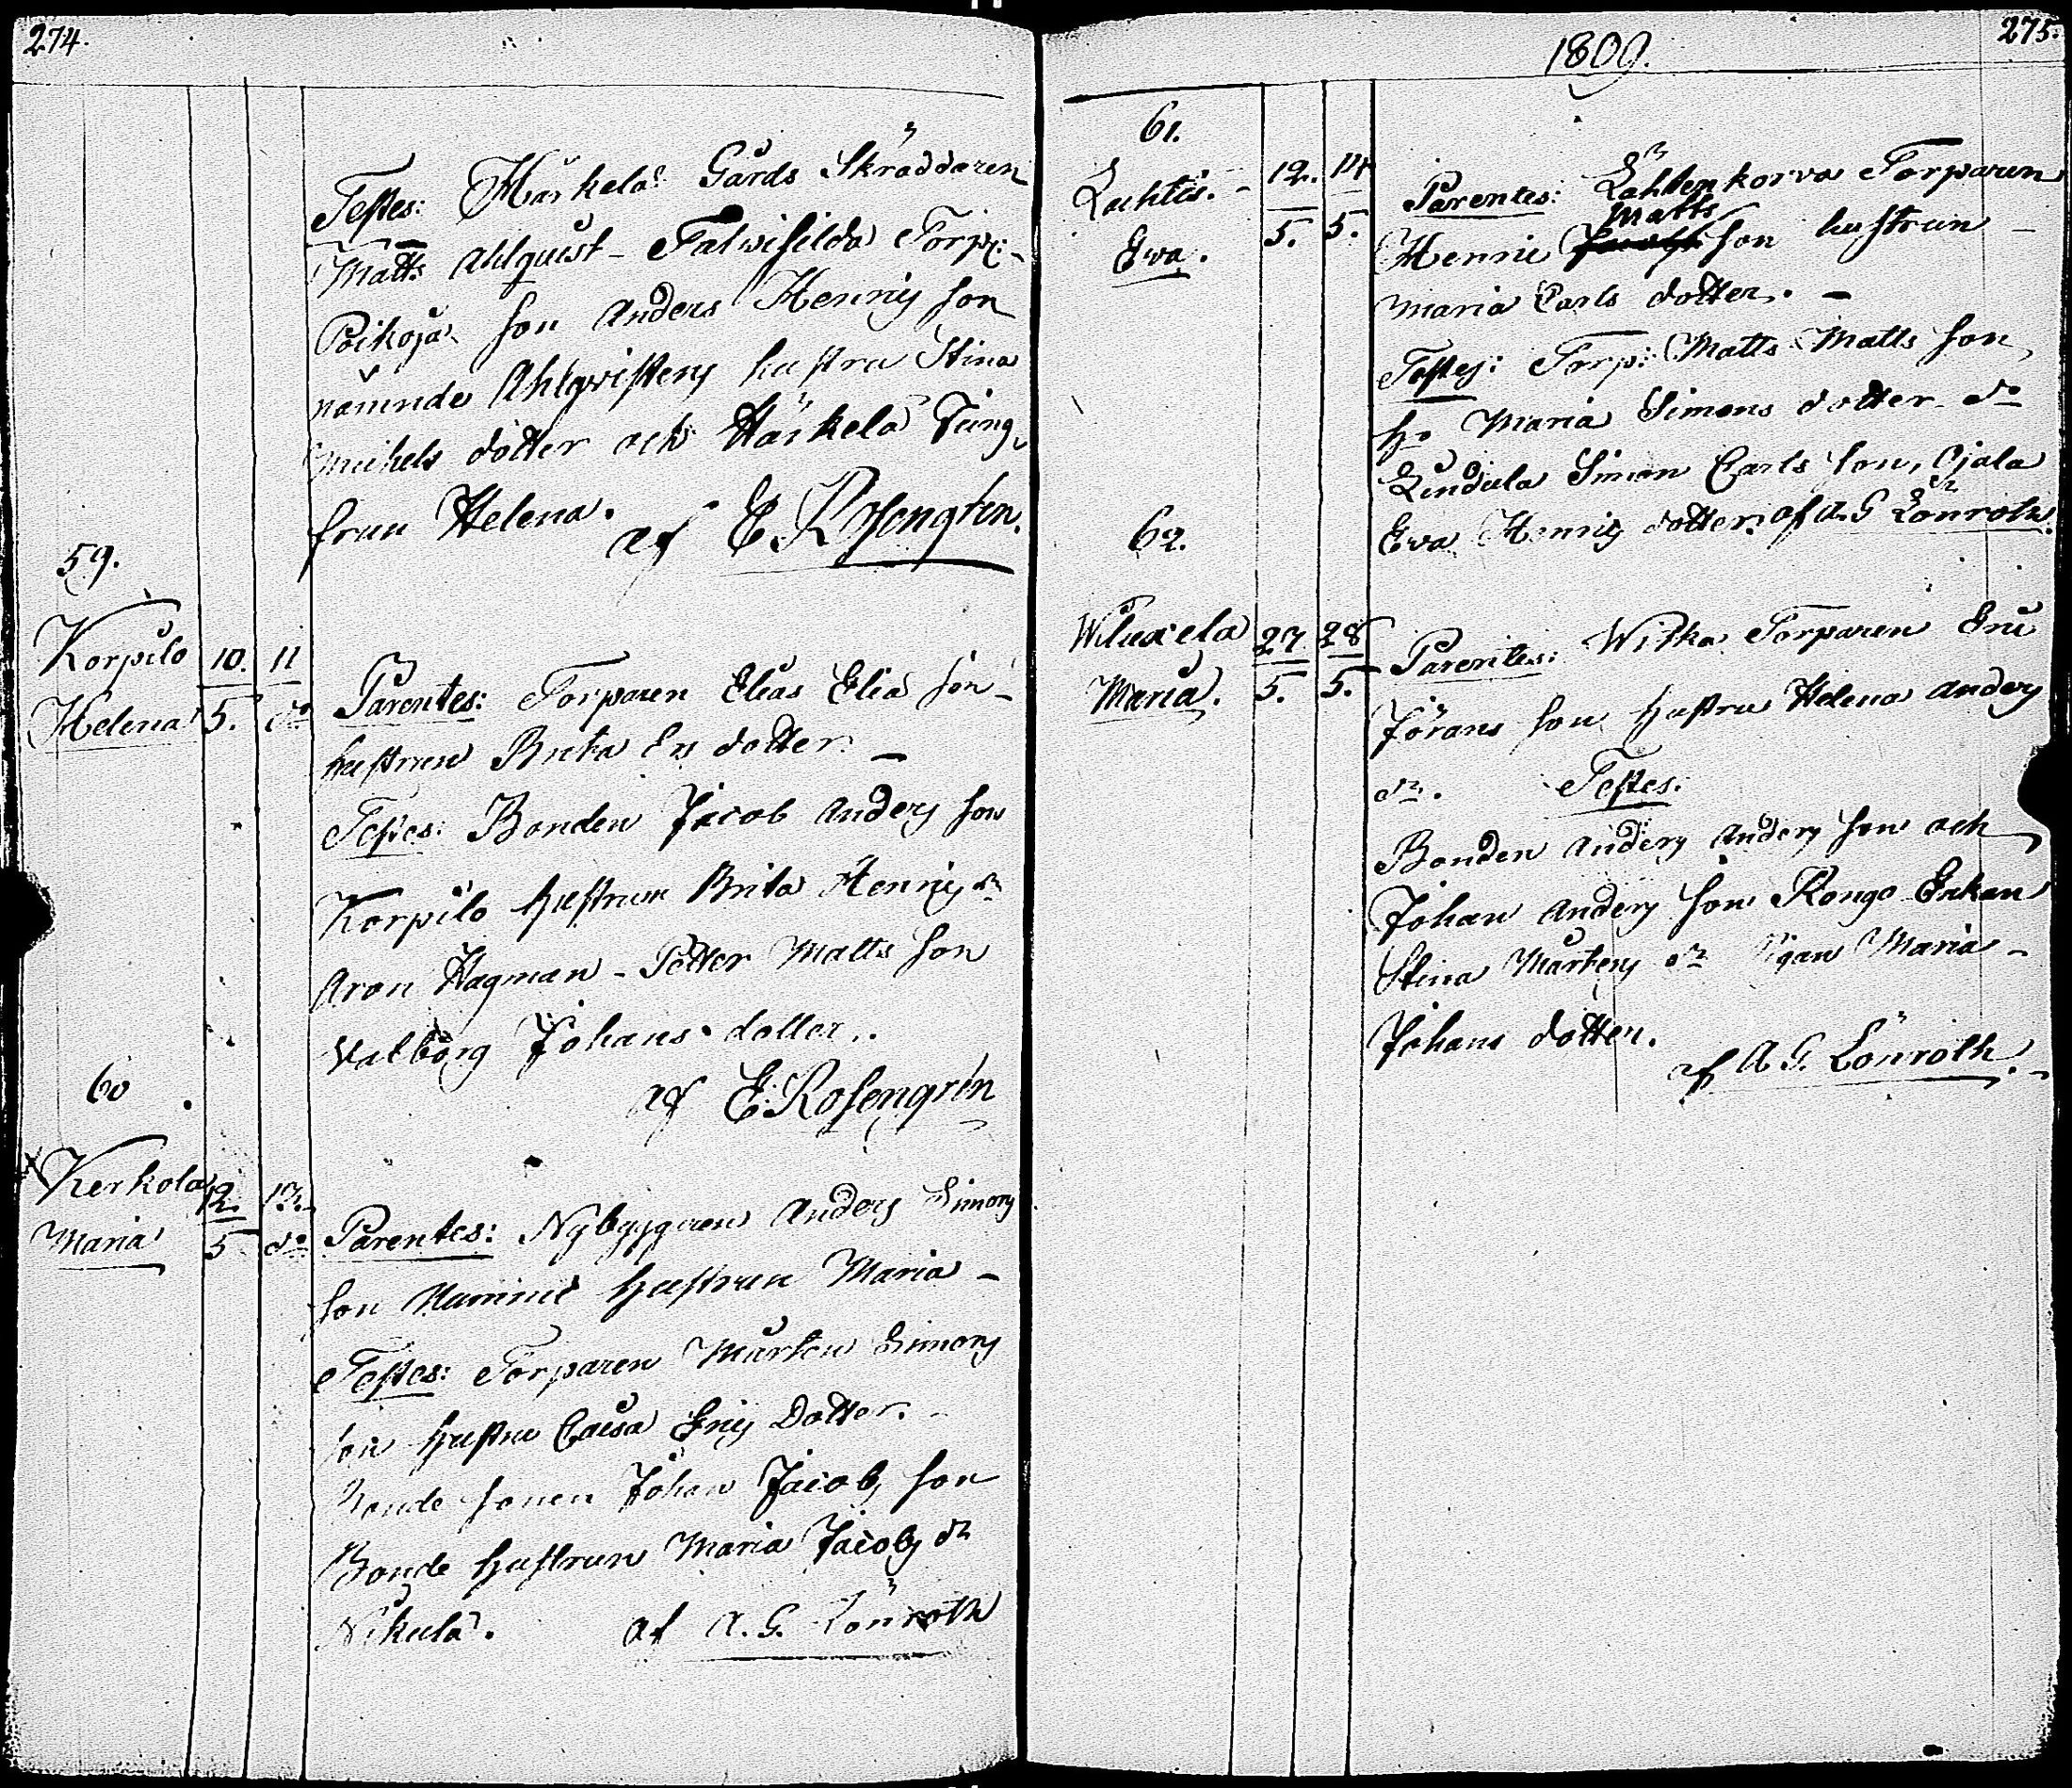 274.
Testes: Härkelä Gårds Skräddaren
Matts Ahlquist - Talwisilda Torp:
Poikoja son Anders Henrics son
nämnde Ahlqvistens hustru Stina
Michels dotter och Härkelä Jung
frun Helena.
af E. Rosengrén.
59.
Korpilo 10. 11
Helena 5. do
Parentes: Torparen Elias Elia son
hustrun Brita Ers dotter. —
Testes: Bonden Jacob Anders son
Korpilo hustrun Brita Henrics dr
Aron Hagman - Petter Matts son
Valborg Johans dotter.
af E. Rosengrén
60
Kerkola 12. 13.
Maria 5 do
Parentes: Nybyggaren Anders Simons
son hustrun Maria -
Testes: Torparen Mårten Simons
son hustru Caisa Erics Dotter.
Bonde sonen Johan Jacobs son
Bonde hustrun Maria Jacobs dr
Nikula. af A. G. Lönroth
1809. 275.
61.
Lachtis. - 12. 14
Eva. 5. 5.
Parentes: Lahtenkorva Torparen
Matts
Henric son hustrun -
Maria Carls dotter. -
Testes: Torp: Matts Matts son,
ho Maria Simons dotter do
Lindula Simon Carls son, Ojala
Eva Henrics dotter. af A. G Lönroth.
62.
Wiluxela 27. 28
Maria. 5. 5.
Parentes: Witka Torparen Eric
Jörans son hustru Helena Anders
dr. Testes:
Bonden Anders Anders son och
Johan Anders son Rongo Enkan
Stina Mårtens dr Pigan Maria -
Johans dotter.
af A G. Lönroth. -